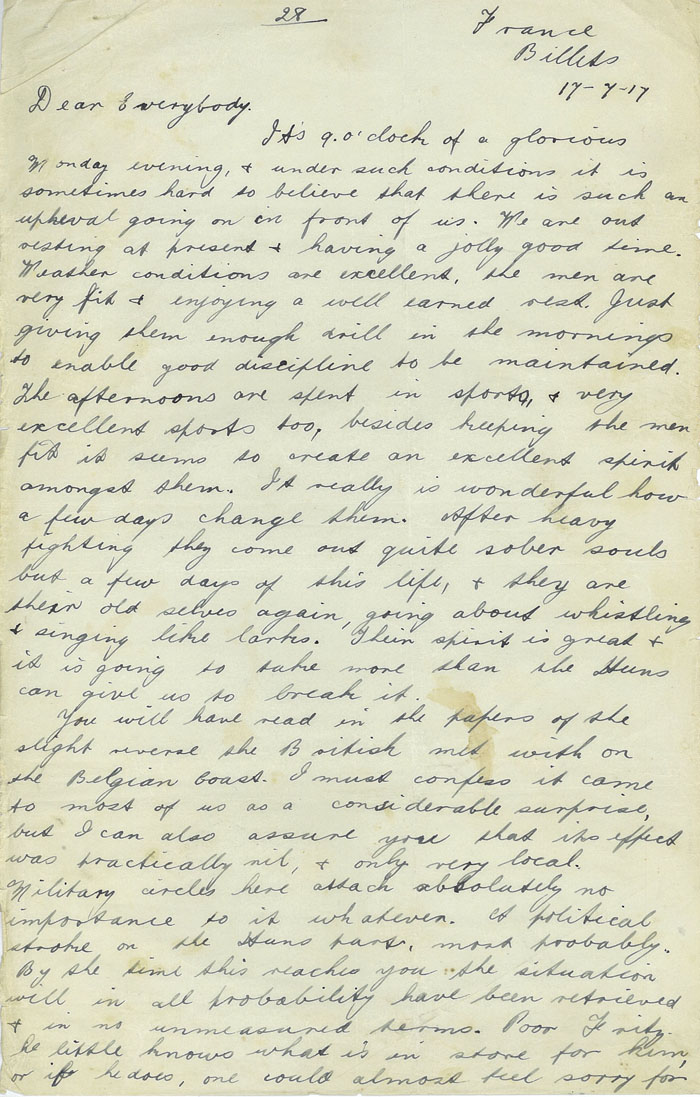 28
France
Billets
17-7-17
Dear Everybody.
It's 9.o'clock of a glorious
Monday evening, & under such conditions it is
sometimes hard to believe that there is such an
upheval going on in front of us. We are out
resting at present & having a jolly good time.
Weather conditions are excellent, the men are
very fit & enjoying a well earned rest. Just
giving them enough drill in the mornings
to enable good discipline to be maintained.
The afternoons are spent in sports, & very
excellent sports too, besides keeping the men
fit it seems to create an excellent spirit
amongst them. It really is wonderful how
a few days change them. After heavy
fighting they come out quite sober souls
but a few days of this life, & they are
their old selves again, going about whistling
& singing like larks. Their spirit is great &
it is going to take more than the Huns
can give us to break it.
You will have read in the papers of the
slight reverse the British met with on
the Belgian Coast. I must confess it came
to most of us as a considerable surprise,
but I can also assure you that its effect
was practically nil, & only very local.
Military circles here attach absolutely no
importance to it whatever. A political
stroke on the Huns part, most probably.
By the time this reaches you the situation
will in all probability have been retrieved
& in no unmeasured terms. Poor Fritz.
he little knows what is in store for him,
or if he does, one could almost feel sorry for